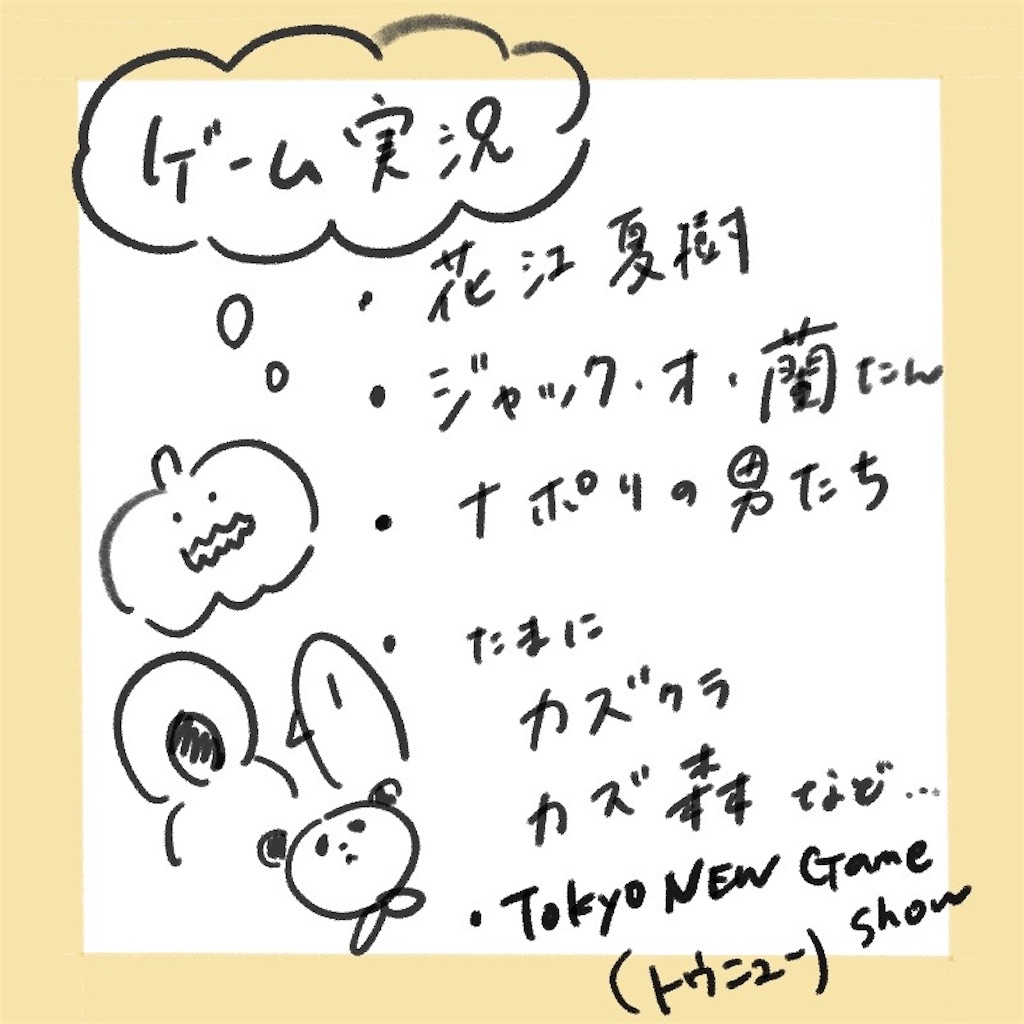 ゲーム実況
・花江夏樹
・ジャック・オ・蘭たん
・ナポリの男たち
・たまに
カズクラ
カズ森など…
・Tokyo NEW Game
Show
(トウニュー)